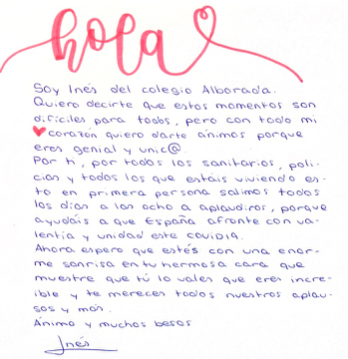 hola
Soy Inés del colegio Alborada.
Quiero decirte que estos momentos son
difíciles para todos, pero con todo mi
corazón quiero darte ánimos porque
eres genial y unic@
Por ti, por todos los sanitarios, poli-
cías y todos los que estáis viviendo es-
to en primera persona salimos todos
los días a las ocho a aplaudiros, porque
ayudáis a que España afronte con va-
lentía y unidad este COVID19.
Ahora espero que estés con una enor-
me sonrisa en tu hermosa cara que
muestre que tú lo vales que eres incre-
ible y te mereces todos nuestros aplau-
sos y más.
Ánimo y muchos besos
Inés